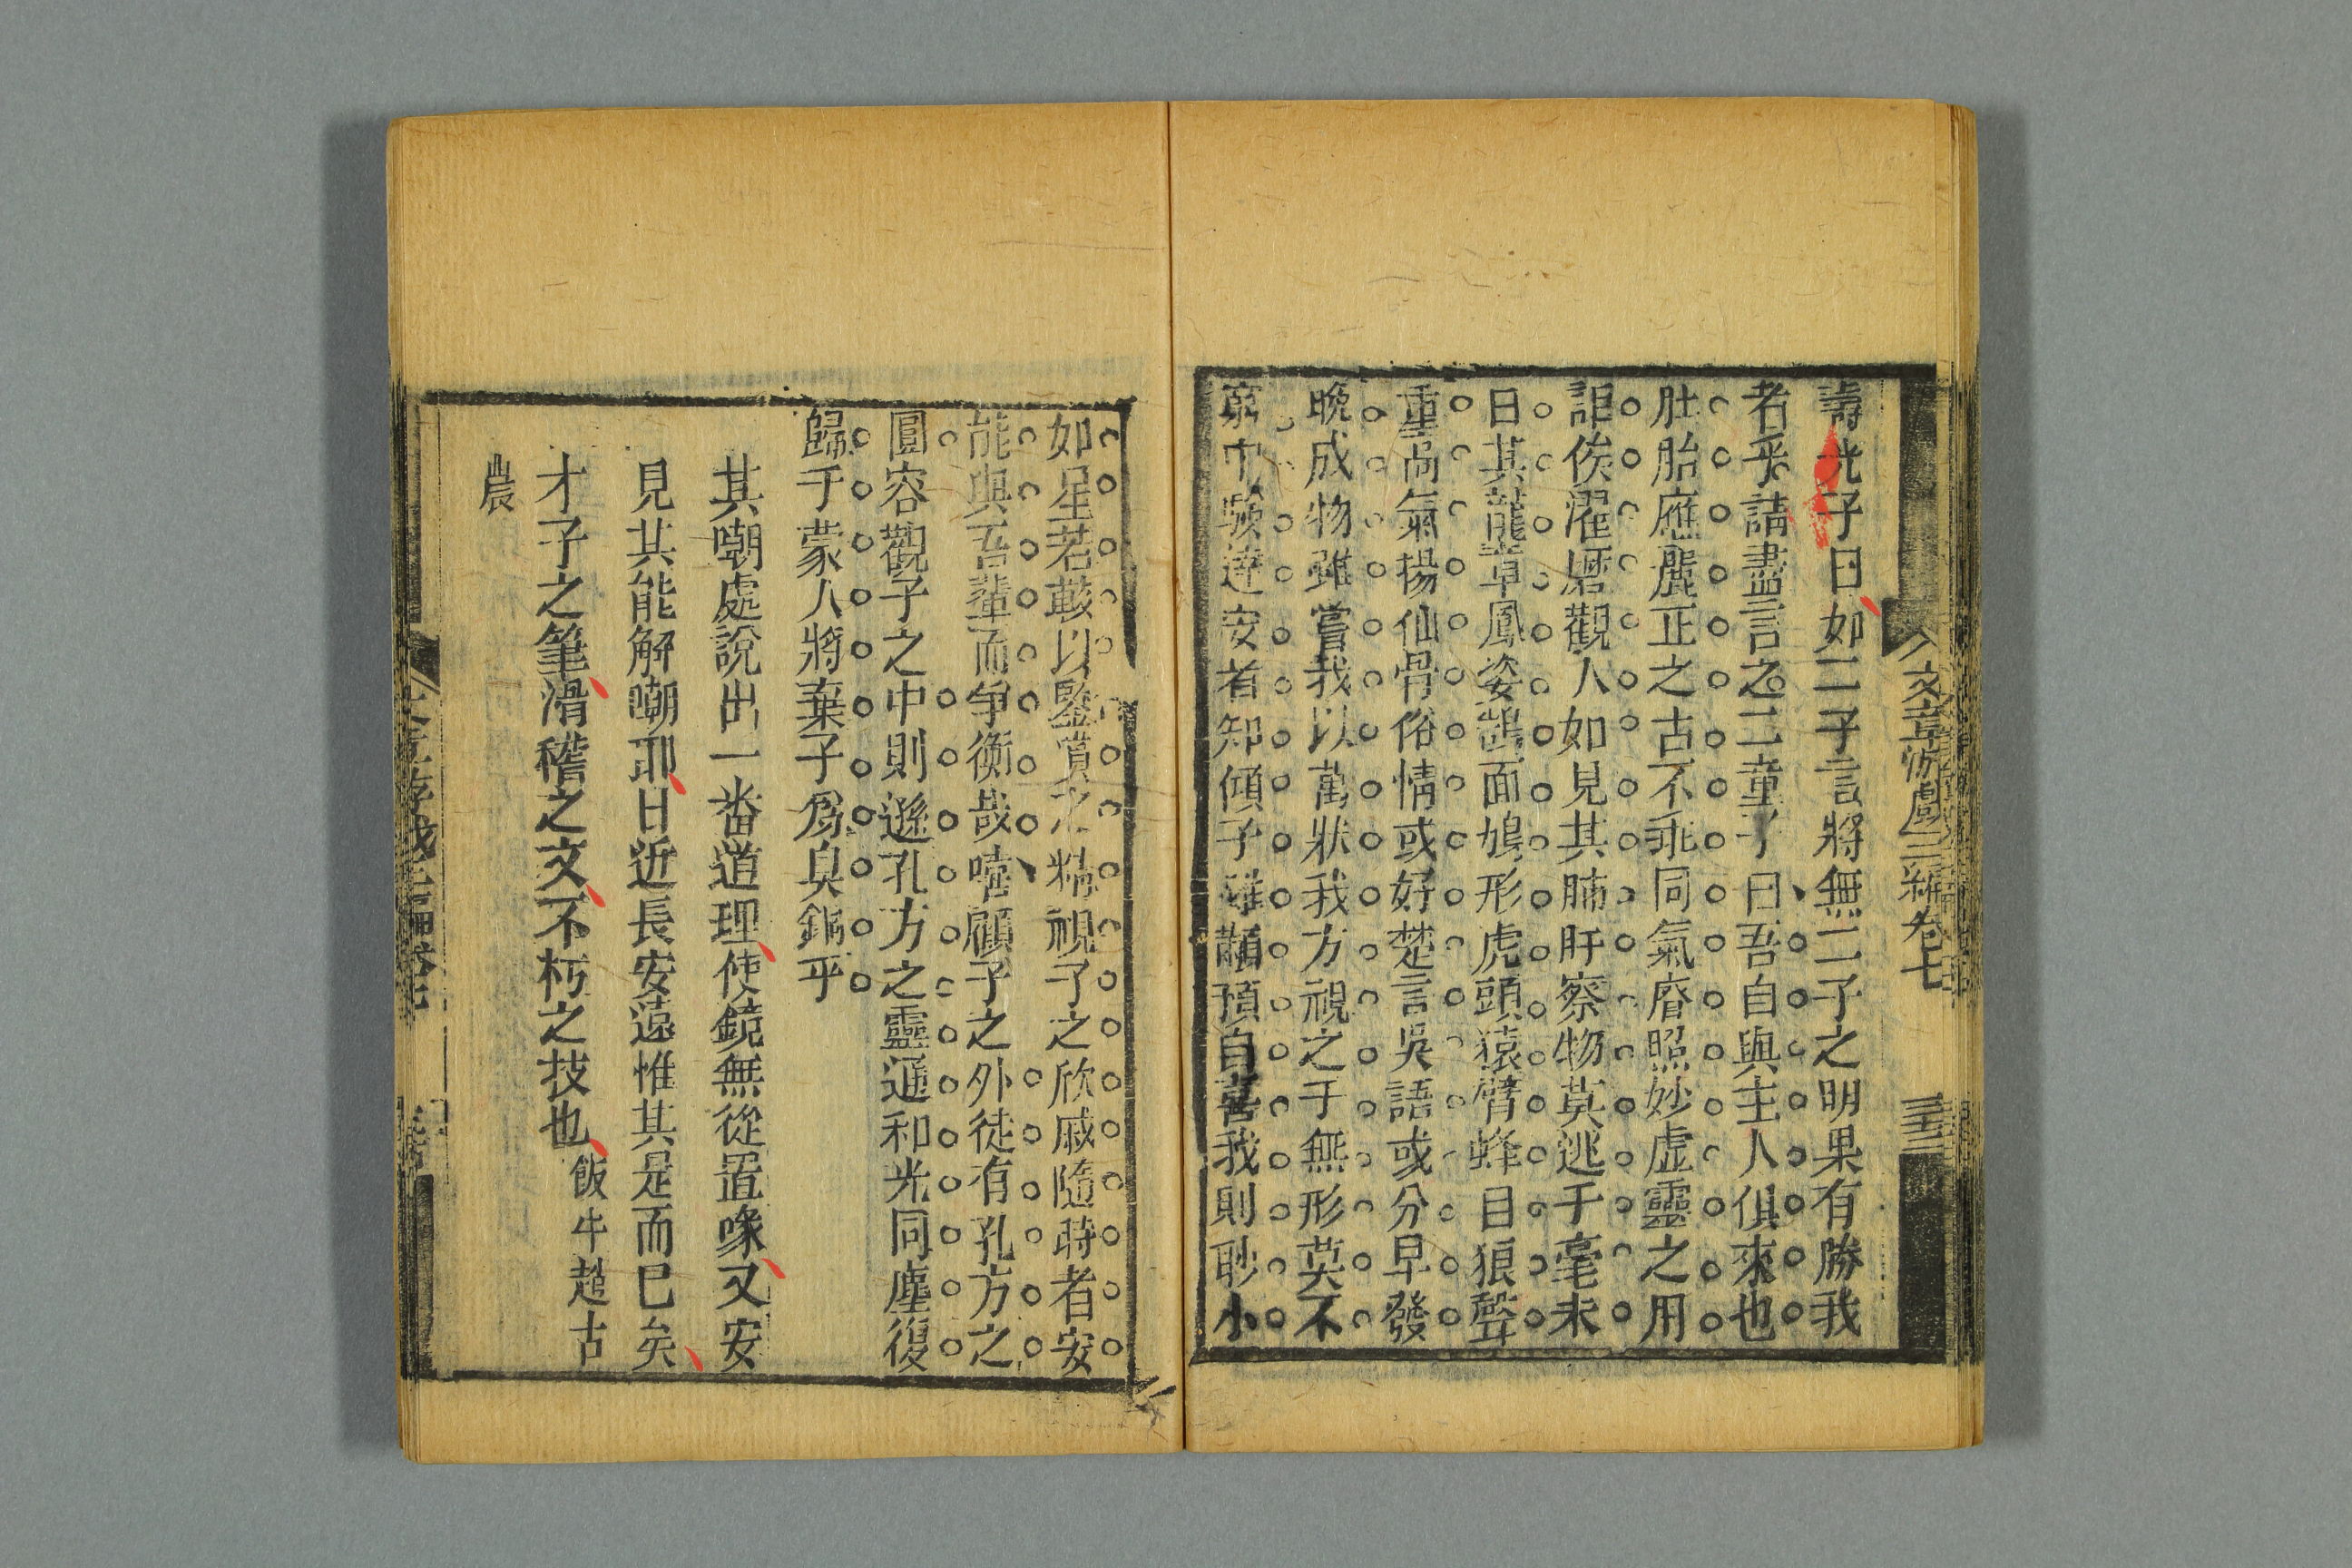 文章游戲三編卷七
壽光子曰如二子言將無二子之明果有勝我
者乎請盡言之二童子曰吾自與主人俱來也
肚胎應麗正之古不乖同氣磨照妙虛靈之用
詎俟濯磨觀人如見其肺肝察物莫逃于毫末
日其龍章鳳姿鵠面鳩形虎頭猿臂蜂目狼聲
重尚氣揚仙骨俗情或好楚言吳語或分早發
晚成物雖嘗我以萬狀我方視之于無形莫不
安者知傾子雖顢頇自喜我則眇小
如星若敢以鑒賞之精視子之欣戚隨時者安
能與吾輩而爭衡哉嘻顧子之外徒有孔方之
圓容觀子之中則遜孔方之靈通和光同塵復
歸于蒙人將棄子爲臭銅乎
其嘲處說出一番道理使鏡無從置喙又安
見其能解嘲耶日近長安遠惟其是而巳矣
才子之筆滑稽之文不朽之技也 飯牛趙古
農